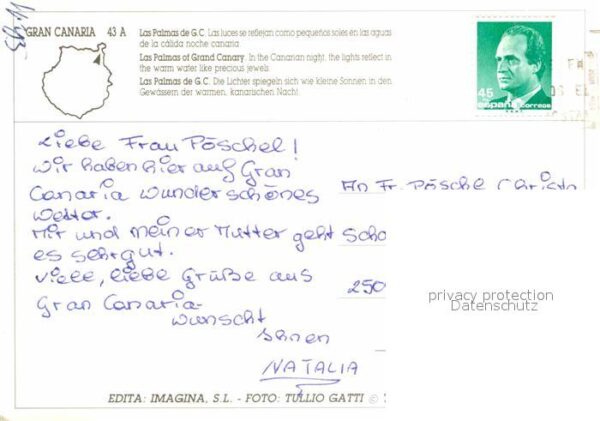 GRAN CANARIA 43 A
Las Palmas de G.C. Las luces se reflejan como pequeños soles en las aguas
de la cálida noche canaria.
Las Palmas of Grand Canary. In the Canarian night, the lights reflect in
the warm water like precious jewels.
Las Palmas de G.C. Die Lichter spiegeln sich wie kleine Sonnen in den
Gewässern der warmen, kanarischen Nacht.
45
españa correos
Liebe Frau Pöschel!
Wir haben hier auf Gran
Canaria wunderschönes
Wetter.
Mir und meiner Mutter geht
es sehr gut.
Viele, liebe Grüße aus
Gran Canaria
wünscht
Ihnen
NATALIA
An Fr. Pöschel
250
privacy protection
Datenschutz
EDITA: IMAGINA, S.L. - FOTO: TULLIO GATTI ©